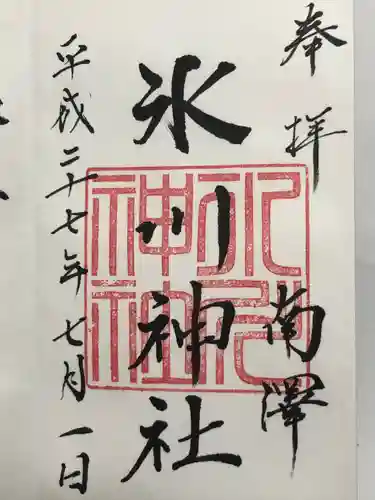 奉拝
南澤
氷川神社
平成二十七年七月一日
氷川
神社